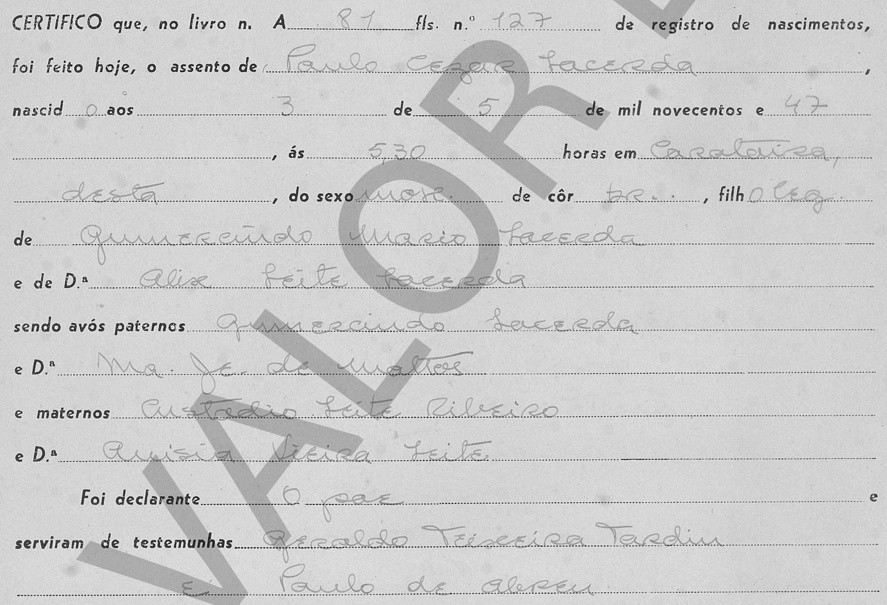 CERTIFICO que, no livro n. A 81 fls. n.º 127 de registro de nascimentos,
foi feito hoje, o assento de Paulo Cezar Lacerda,
nascid o aos 3 de 5 de mil novecentos e 47
, ás 5,30 horas em
desta, do sexo masc. de côr br.., filh o leg.
de Gumercindo Mario Lacerda
e de D.ª Alix Leite Lacerda
sendo avós paternos Gumercindo Lacerda
e D.ª Ma. de Mattos
e maternos Custodio Leite Ribeiro
e D.ª Anisia Vieira Leite
Foi declarante O pae e
serviram de testemunhas Geraldo Teixeira Tardin
E Paulo de Abreu
VALOR